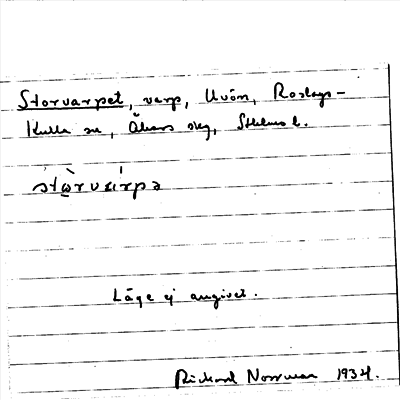 Storvarpet, varp, Uvön, Roslags-
Kulla sn, Åkers skg, Sthlms l.
stòrvárpə
Läge ej angivet.
Rickard Norrman 1934.